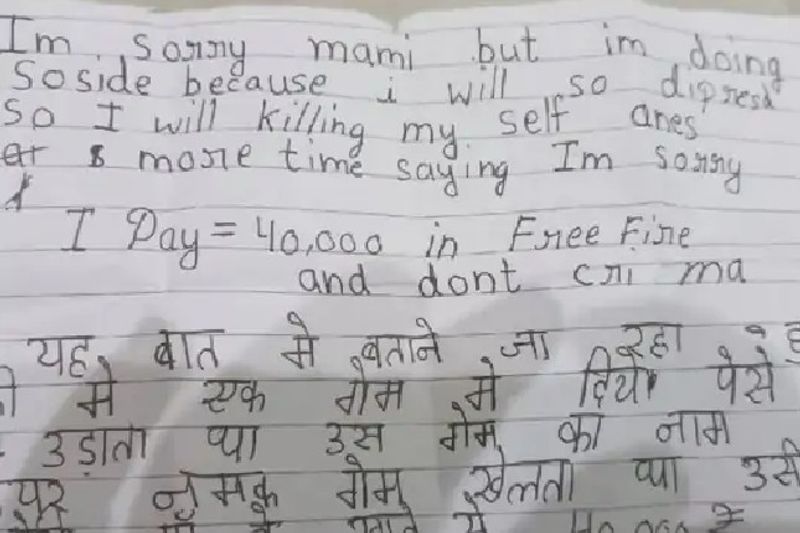 Im sorry mami but im doing
Soside because i will so dipresd
So I will killing my self anes
er s more time saying Im sorry
I Day = 40,000 in Free Fire
and dont cri ma
यह बात मे बताने जा रहा हु
मे एक गेम मे दिया पेसे
उड़ाता था उस गेम का नाम
पर नमक गेम खेलता था उसी
40,000 ₹